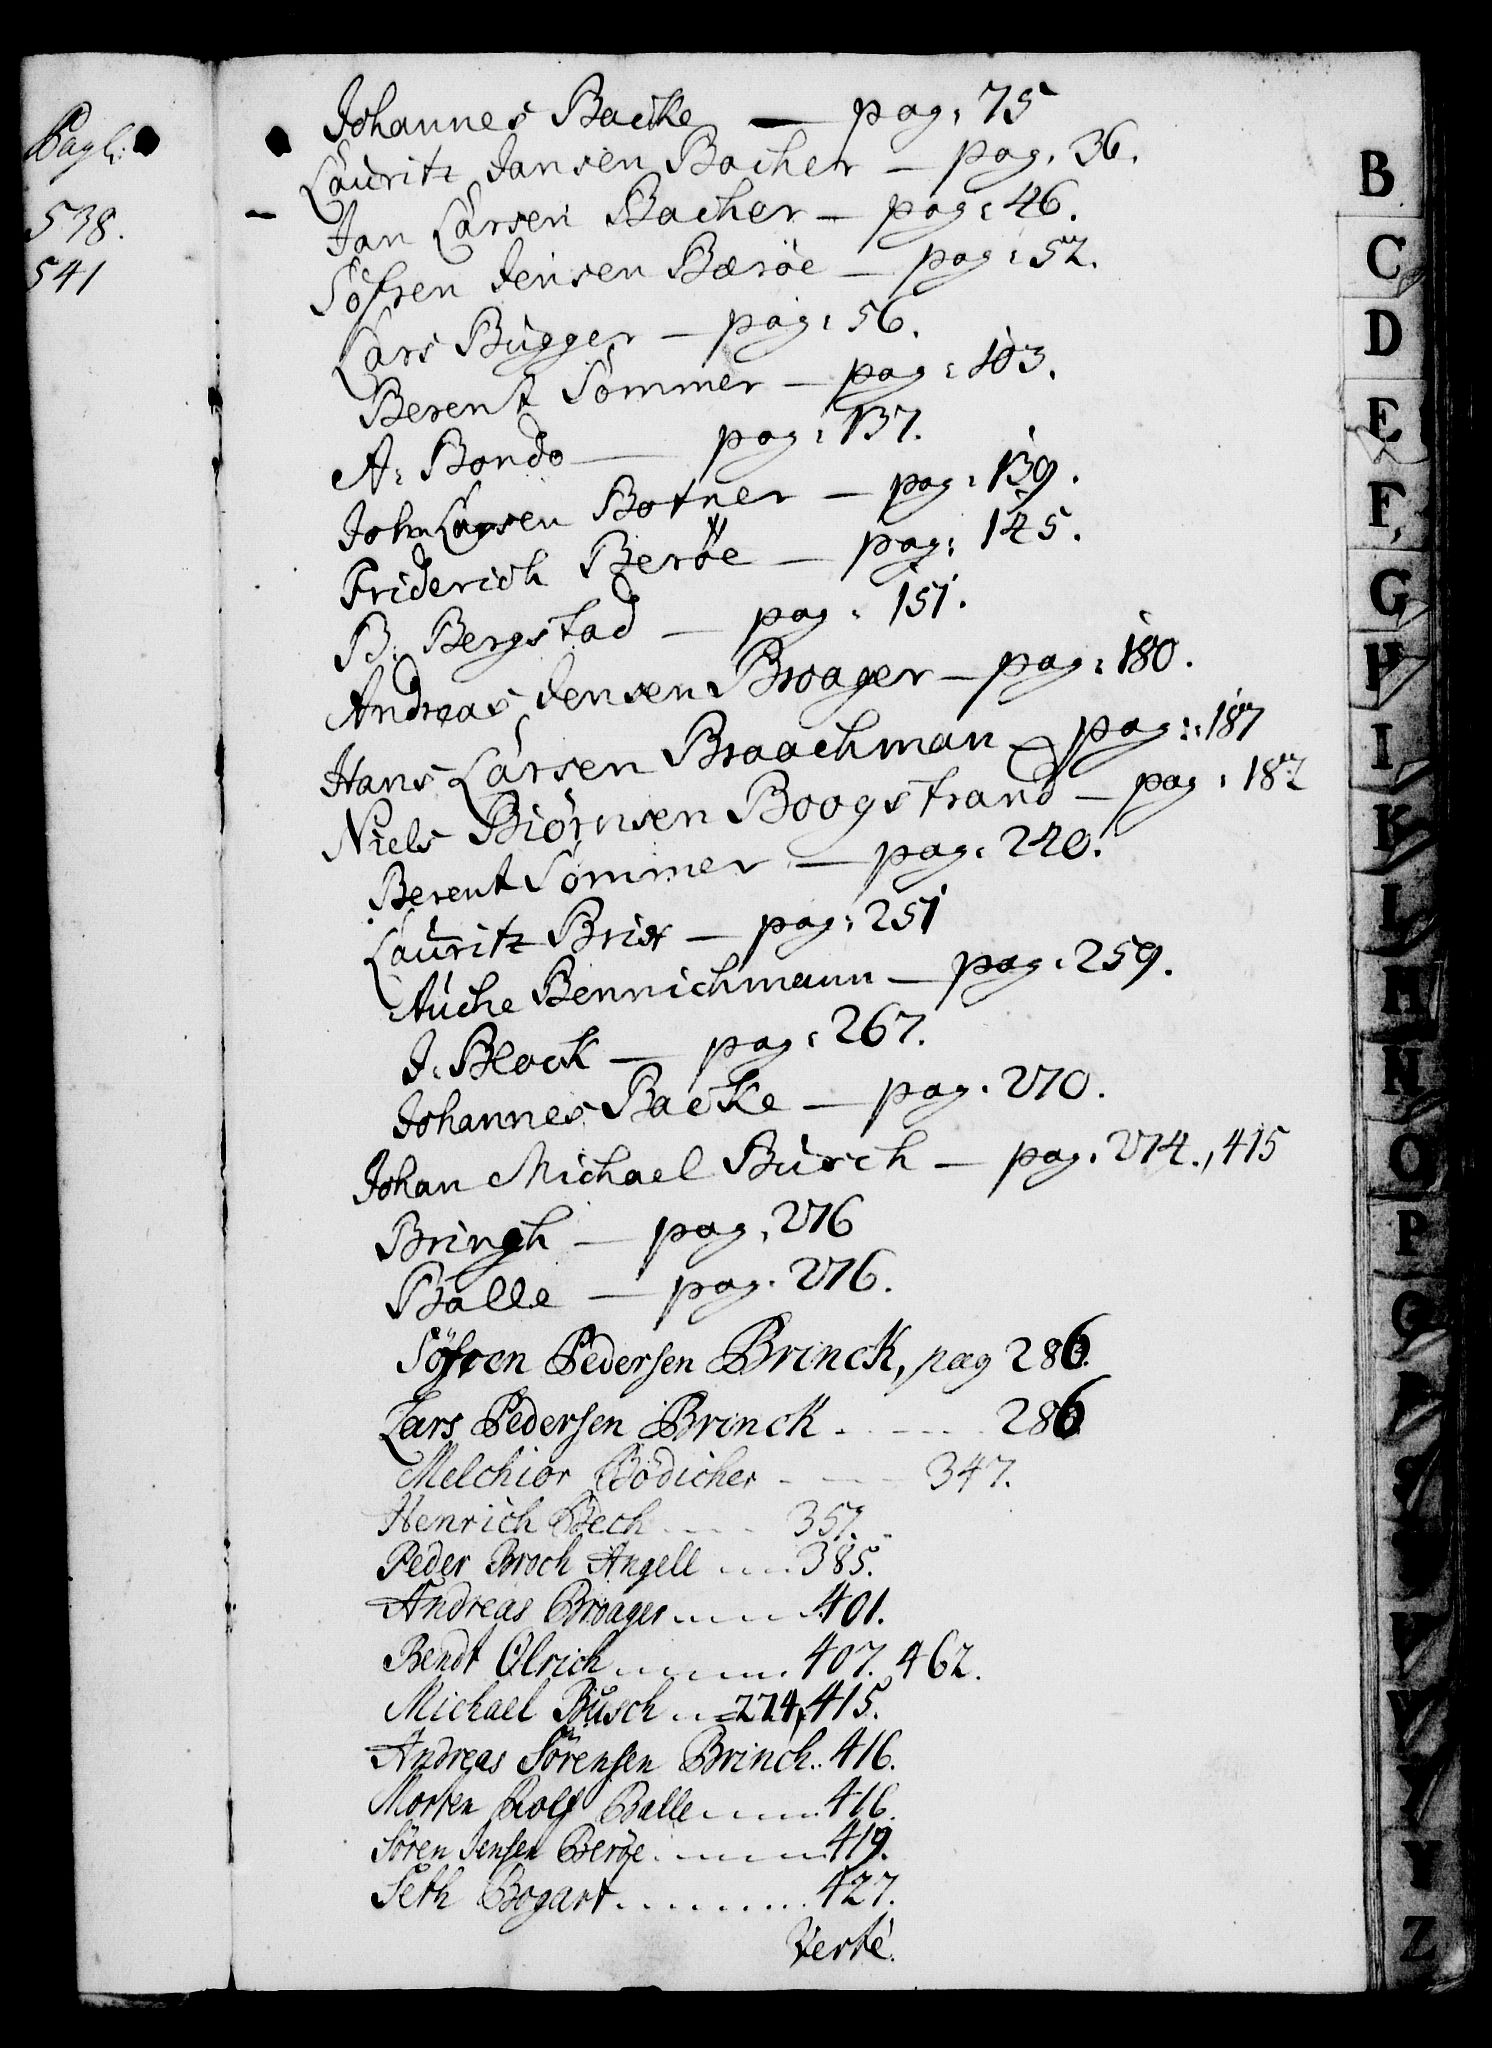 Pagl:
538.
541
Johannes Backe — pag: 75
Lauritz Jansen Bacher — pag. 36.
Jan Larsen Bacher — pag: 46.
Söfren Jensen Bæröe — pag: 52.
Lars Bugger — pag: 56.
Berent Sommer — pag: 103.
A: Bondo — pag: 137.
John Larsen Botner — pag: 139.
Friderich Beröe — pag: 145.
B: Bergstad — pag: 151.
Andreas Jensen Broager — pag: 180.
Hans Larsen Braachman — pag: 187
Niels Biörnsen Boogstrand — pag: 182
Berent Sommer — pag: 240.
Lauritz Brix — pag: 251
Auche Bennichmann — pag: 259.
J: Block — pag: 267.
Johannes Backe — pag. 270.
Johan Michael Busch — pag. 274., 415
Bringh — pag. 276
Balle — pag. 276.
Söfren Pedersen Brinck, pag 286.
Lars Pedersen Brinck . . . . . 286
Melchior Bödicher - - - - 347.
Henrich Bech . . . . 357.
Peder Broch Angell . . . . 385.
Andreas Broager . . . . . 401.
Bendt Olrich . . . . . . 407. 462.
Michael Busch . . 274, 415.
Andreas Sörensen Brinch . . 416.
Morten Rolf Balle . . . . . 416.
Sören Jensen Beröe . . . . . 419.
Seth Bogart . . . . . . . . . 427.
Verte.
B
C
D
E
F
G
H
I
K
L
M
N
O
P
Q
V
Y
Z